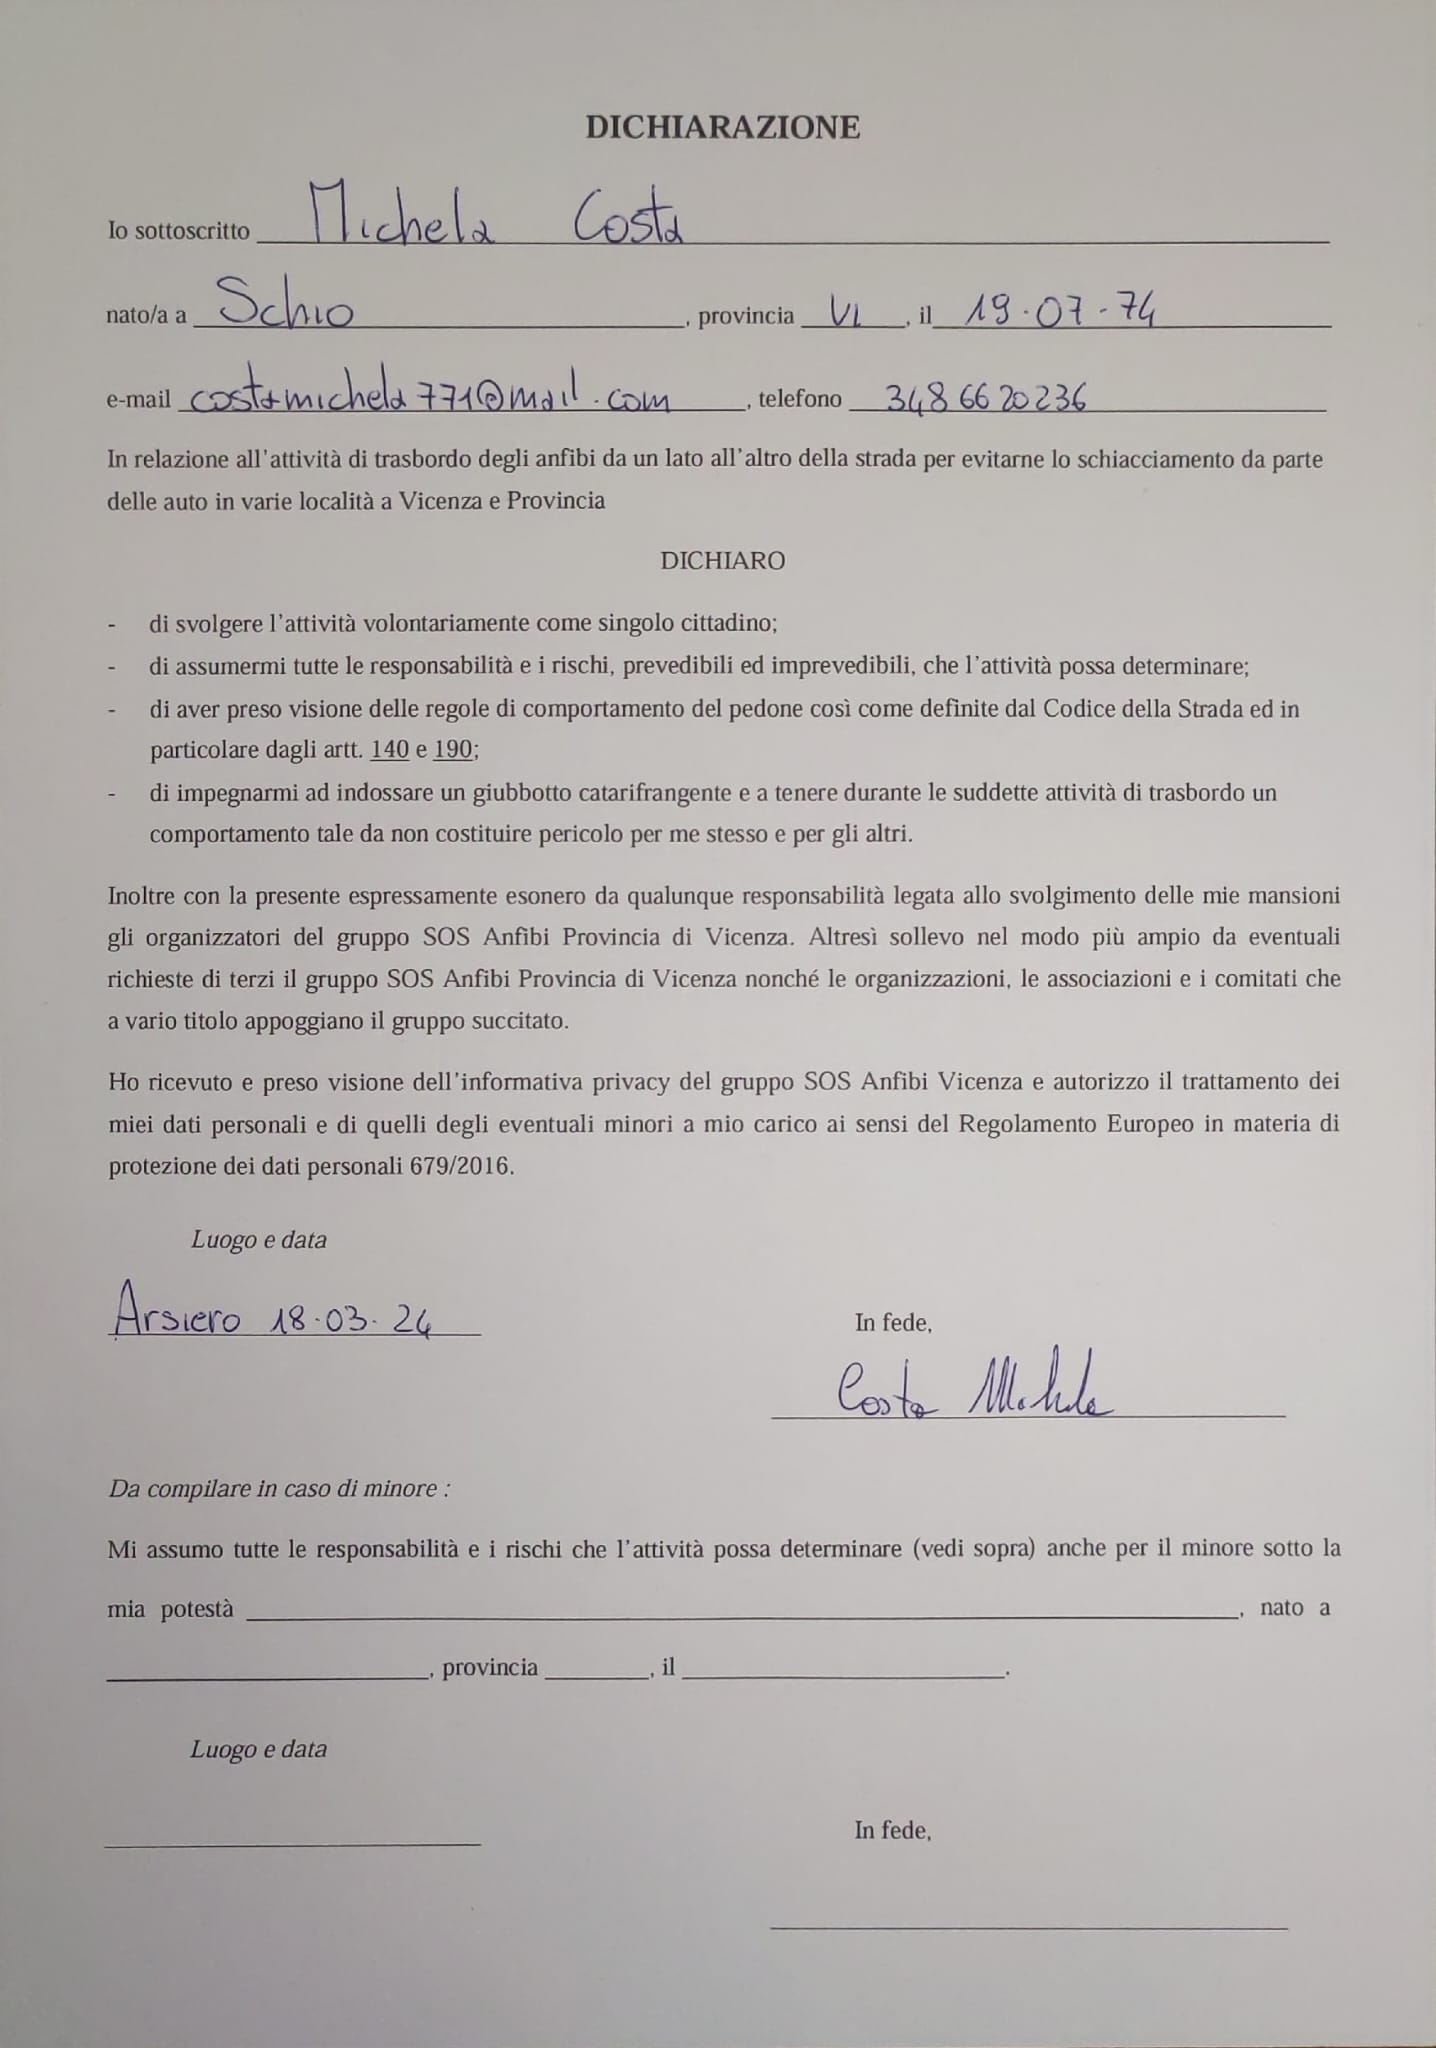 DICHIARAZIONE
Io sottoscritto Michela Costa
nato/a a Schio, provincia VI, il 19.07-74
e-mail costamichela771@mail.com, telefono 348 66 20236
In relazione all'attività di trasbordo degli anfibi da un lato all'altro della strada per evitarne lo schiacciamento da parte
delle auto in varie località a Vicenza e Provincia
DICHIARO
- di svolgere l'attività volontariamente come singolo cittadino;
- di assumermi tutte le responsabilità e i rischi, prevedibili ed imprevedibili, che l'attività possa determinare;
- di aver preso visione delle regole di comportamento del pedone così come definite dal Codice della Strada ed in
particolare dagli artt. 140 e 190;
- di impegnarmi ad indossare un giubbotto catarifrangente e a tenere durante le suddette attività di trasbordo un
comportamento tale da non costituire pericolo per me stesso e per gli altri.
Inoltre con la presente espressamente esonero da qualunque responsabilità legata allo svolgimento delle mie mansioni
gli organizzatori del gruppo SOS Anfibi Provincia di Vicenza. Altresì sollevo nel modo più ampio da eventuali
richieste di terzi il gruppo SOS Anfibi Provincia di Vicenza nonché le organizzazioni, le associazioni e i comitati che
a vario titolo appoggiano il gruppo succitato.
Ho ricevuto e preso visione dell'informativa privacy del gruppo SOS Anfibi Vicenza e autorizzo il trattamento dei
miei dati personali e di quelli degli eventuali minori a mio carico ai sensi del Regolamento Europeo in materia di
protezione dei dati personali 679/2016.
Luogo e data
Arsiero 18.03.24
In fede,
Costa Michela
Da compilare in caso di minore :
Mi assumo tutte le responsabilità e i rischi che l'attività possa determinare (vedi sopra) anche per il minore sotto la
mia potestà , nato a
, provincia , il .
Luogo e data
In fede,